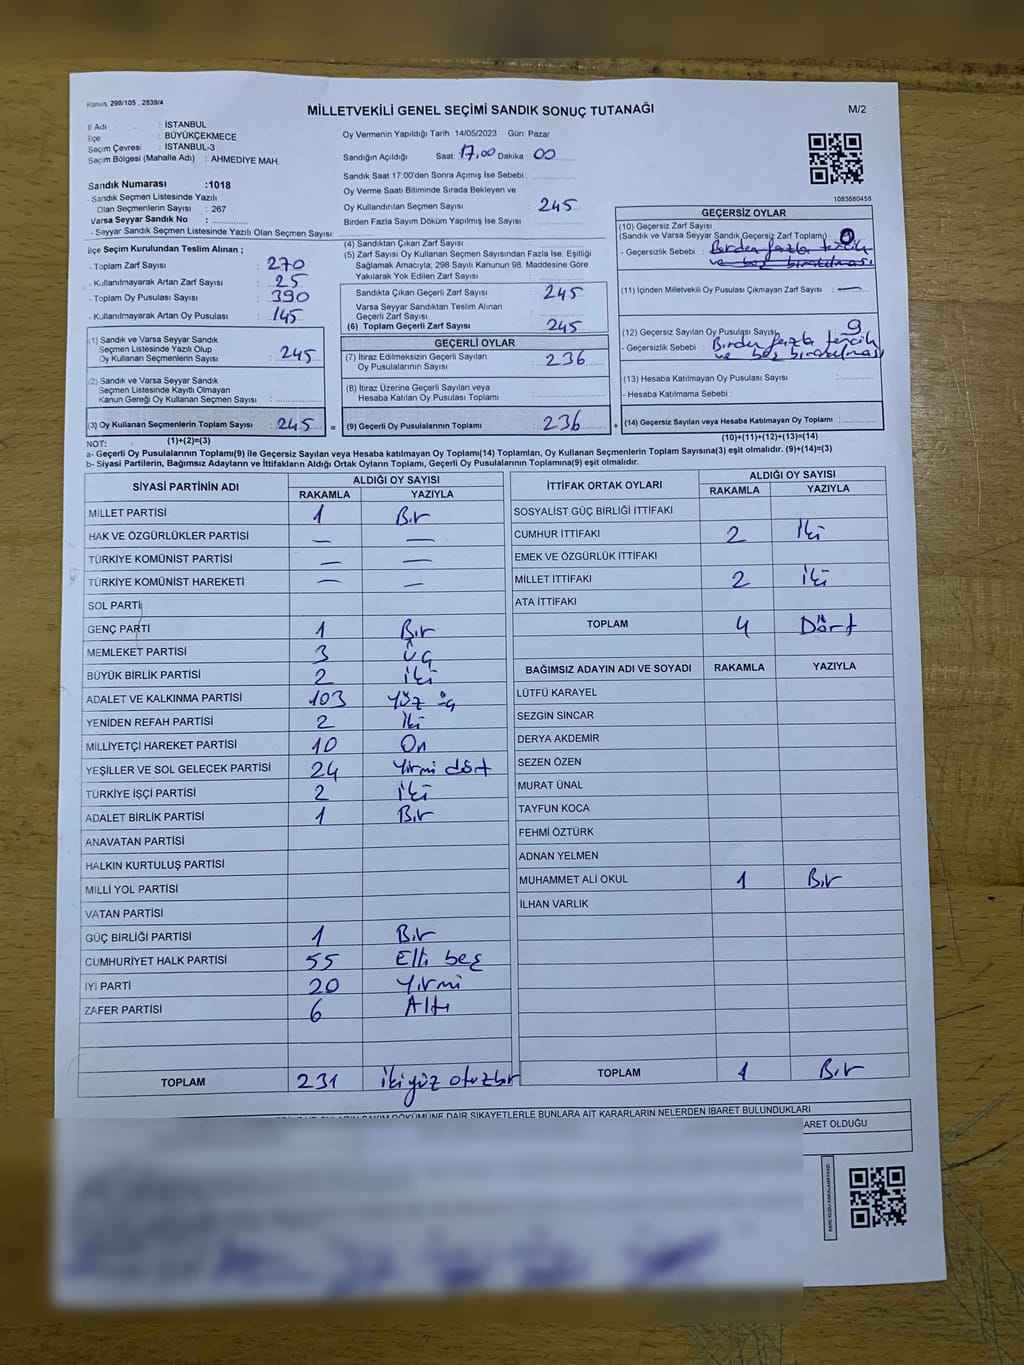 Kanun, 298/105 , 2839/4
MİLLETVEKİLİ GENEL SEÇİMİ SANDIK SONUÇ TUTANAĞI
M/2
İl Adı : İSTANBUL
İlçe : BÜYÜKÇEKMECE
Seçim Çevresi : İSTANBUL-3
Seçim Bölgesi (Mahalle Adı) : AHMEDİYE MAH.
Sandık Numarası :1018
- Sandık Seçmen Listesinde Yazılı
Olan Seçmenlerin Sayısı : 267
Varsa Seyyar Sandık No :
- Seyyar Sandık Seçmen Listesinde Yazılı Olan Seçmen Sayısı:
Oy Vermenin Yapıldığı Tarih :14/05/2023 Gün: Pazar
Sandığın Açıldığı Saat: 17.00 Dakika : 00
Sandık Saat 17:00'den Sonra Açımış İse Sebebi :
Oy Verme Saati Bitiminde Sırada Bekleyen ve
Oy Kullandırılan Seçmen Sayısı : 245
Birden Fazla Sayım Döküm Yapılmış İse Sayısı :
1083680458
İlçe Seçim Kurulundan Teslim Alınan ;
- Toplam Zarf Sayısı : 270
- Kullanılmayarak Artan Zarf Sayısı : 25
- Toplam Oy Pusulası Sayısı : 390
- Kullanılmayarak Artan Oy Pusulası : 145
(1) Sandık ve Varsa Seyyar Sandık
Seçmen Listesinde Yazılı Olup
Oy Kullanan Seçmenlerin Sayısı : 245
(2) Sandık ve Varsa Seyyar Sandık
Seçmen Listesinde Kayıtlı Olmayan
Kanun Gereği Oy Kullanan Seçmen Sayısı :
(3) Oy Kullanan Seçmenlerin Toplam Sayısı : 245 =
(4) Sandıktan Çıkan Zarf Sayısı :
(5) Zarf Sayısı Oy Kullanan Seçmen Sayısından Fazla İse, Eşitliği
Sağlamak Amacıyla; 298 Sayılı Kanunun 98. Maddesine Göre
Yakılarak Yok Edilen Zarf Sayısı :
Sandıkta Çıkan Geçerli Zarf Sayısı : 245
Varsa Seyyar Sandıktan Teslim Alınan
Geçerli Zarf Sayısı :
(6) Toplam Geçerli Zarf Sayısı : 245
GEÇERLİ OYLAR
(7) İtiraz Edilmeksizin Geçerli Sayılan
Oy Pusulalarının Sayısı : 236
(8) İtiraz Üzerine Geçerli Sayılan veya
Hesaba Katılan Oy Pusulası Toplamı :
(9) Geçerli Oy Pusulalarının Toplamı : 236 +
GEÇERSİZ OYLAR
(10) Geçersiz Zarf Sayısı
(Sandık ve Varsa Seyyar Sandık Geçersiz Zarf Toplamı) :
- Geçersizlik Sebebi : Birden fazla tercih
ve boş bırakılması
(11) İçinden Milletvekili Oy Pusulası Çıkmayan Zarf Sayısı : —
(12) Geçersiz Sayılan Oy Pusulası Sayısı : 9
- Geçersizlik Sebebi : Birden fazla tercih
ve boş bırakılması
(13) Hesaba Katılmayan Oy Pusulası Sayısı :
- Hesaba Katılmama Sebebi :
(14) Geçersiz Sayılan veya Hesaba Katılmayan Oy Toplamı :
NOT: (1)+(2)=(3) (10)+(11)+(12)+(13)=(14)
a- Geçerli Oy Pusulalarının Toplamı(9) ile Geçersiz Sayılan veya Hesaba Katılmayan Oy Toplamı(14) Toplamları, Oy Kullanan Seçmenlerin Toplam Sayısına(3) eşit olmalıdır. (9)+(14)=(3)
b- Siyasi Partilerin, Bağımsız Adayların ve İttifakların Aldığı Ortak Oyların Toplamı, Geçerli Oy Pusulalarının Toplamına(9) eşit olmalıdır.
SİYASİ PARTİNİN ADI ALDIĞI OY SAYISI
RAKAMLA YAZIYLA
MİLLET PARTİSİ 1 Bir
HAK VE ÖZGÜRLÜKLER PARTİSİ — —
TÜRKİYE KOMÜNİST PARTİSİ — —
TÜRKİYE KOMÜNİST HAREKETİ — —
SOL PARTİ
GENÇ PARTİ 1 Bir
MEMLEKET PARTİSİ 3 Üç
BÜYÜK BİRLİK PARTİSİ 2 İki
ADALET VE KALKINMA PARTİSİ 103 Yüz üç
YENİDEN REFAH PARTİSİ 2 İki
MİLLİYETÇİ HAREKET PARTİSİ 10 On
YEŞİLLER VE SOL GELECEK PARTİSİ 24 Yirmi dört
TÜRKİYE İŞÇİ PARTİSİ 2 İki
ADALET BİRLİK PARTİSİ 1 Bir
ANAVATAN PARTİSİ
HALKIN KURTULUŞ PARTİSİ
MİLLİ YOL PARTİSİ
VATAN PARTİSİ
GÜÇ BİRLİĞİ PARTİSİ 1 Bir
CUMHURİYET HALK PARTİSİ 55 Elli beş
İYİ PARTİ 20 Yirmi
ZAFER PARTİSİ 6 Altı
TOPLAM 231 İkiyüz otuzbir
İTTİFAK ORTAK OYLARI ALDIĞI OY SAYISI
RAKAMLA YAZIYLA
SOSYALİST GÜÇ BİRLİĞİ İTTİFAKI
CUMHUR İTTİFAKI 2 İki
EMEK VE ÖZGÜRLÜK İTTİFAKI
MİLLET İTTİFAKI 2 İki
ATA İTTİFAKI
TOPLAM 4 Dört
BAĞIMSIZ ADAYIN ADI VE SOYADI RAKAMLA YAZIYLA
LÜTFÜ KARAYEL
SEZGİN SİNCAR
DERYA AKDEMİR
SEZEN ÖZEN
MURAT ÜNAL
TAYFUN KOCA
FEHMİ ÖZTÜRK
ADNAN YELMEN
MUHAMMET ALİ OKUL 1 Bir
İLHAN VARLIK
TOPLAM 1 Bir
SAYIM DÖKÜMÜNE DAİR ŞİKAYETLERLE BUNLARA AİT KARARLARIN NELERDEN İBARET BULUNDUKLARI
ARET OLDUĞU